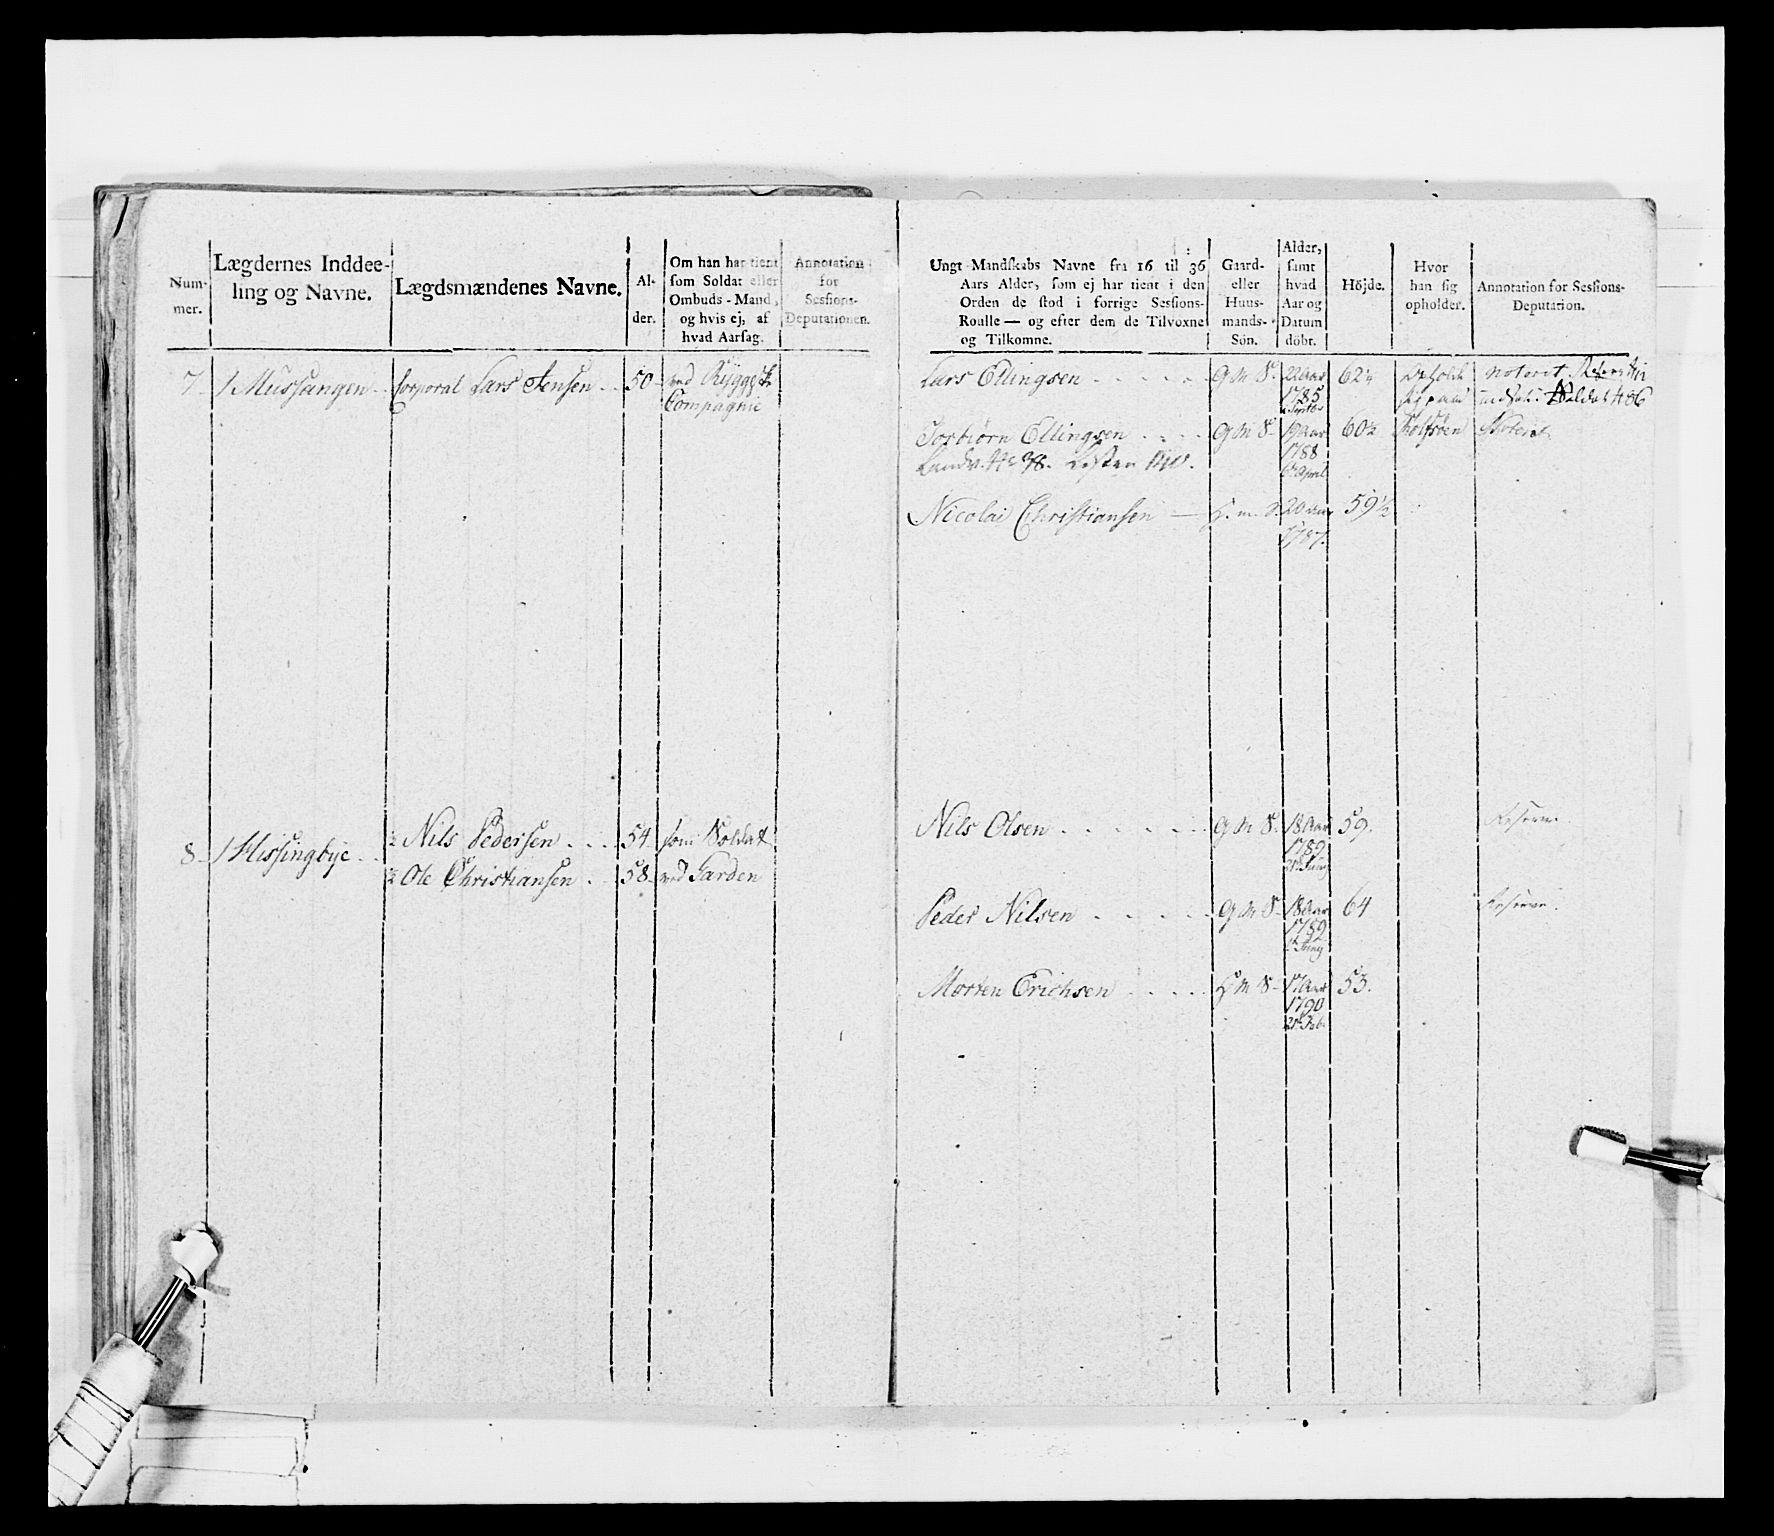 Num-
mer.
Lægdernes Inddee-
ling og Navne.
Lægdsmændenes Navne.
Al-
der.
Om han har tient
som Soldat eller
Ombuds-Mand,
og hvis ej, af
hvad Aarsag.
Annotation
for
Sessions-
Deputationen.
7. 1 Mussangen Corporal Lars Jensen 50 ved
Compagnie
8. 1 Hissingbye
½ Nils Pedersen 54 som Soldat
½ Ole Christiansen 58 ved Garden
Ungt Mandskabs Navne fra 16 til 36
Aars Alder, som ej har tient i den
Orden de stod i forrige Sessions-
Roulle — og efter dem de Tilvoxne
og Tilkomne.
Gaard-
eller
Huus-
mands-
Sön.
Alder,
samt
hvad
Aar og
Datum
döbt.
Höjde.
Hvor
han sig
opholder.
Annotation for Sessions-
Deputation.
Lars Ellingsen G M S. 22 Aar 62½ noteret
1785 Soldat 486
Torbiørn Ellingsen G M S 19 Aar 60½ Noteret
1788
6 April
Landv. No 78.
Nicolai Christiansen — H. m. S. 20 Aar 59½
1787.
Nils Olsen G M S. 18 Aar 59. Reserve
1789
Peder Nilsen G M S 18 Aar 64 Reserve
1789
Morten Erichsen H M S 17 Aar 53.
1790
Feb.